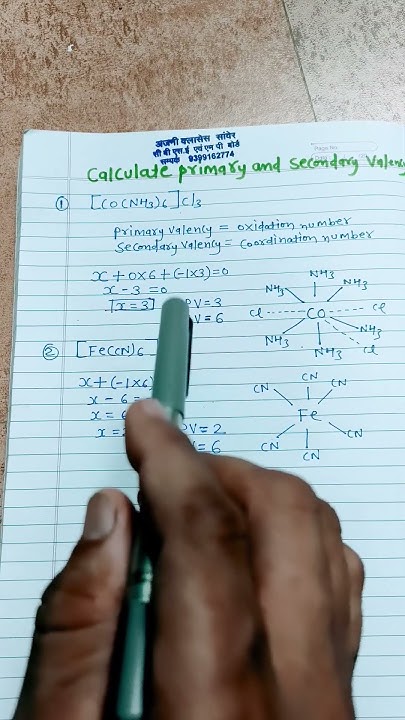 अजनी क्लासेस सांवेर
सी बी एस.ई एवं एम पी बोर्ड
सम्पर्क 9399162774
Page No.
Calculate primary and secondary Valency
① [CO(NH3)6]Cl3
primary valency = oxidation number
Secondary valency = Coordination number
x + 0x6 + (-1x3) = 0
x - 3 = 0
[x = 3] PV = 3
V = 6
NH3
NH3 NH3
Cl CO Cl
NH3 NH3
NH3 Cl
② [Fe(CN)6
x + (-1x6)
x - 6 =
x = 6
x = PV = 2
V = 6
CN
CN CN
Fe
CN CN
CN